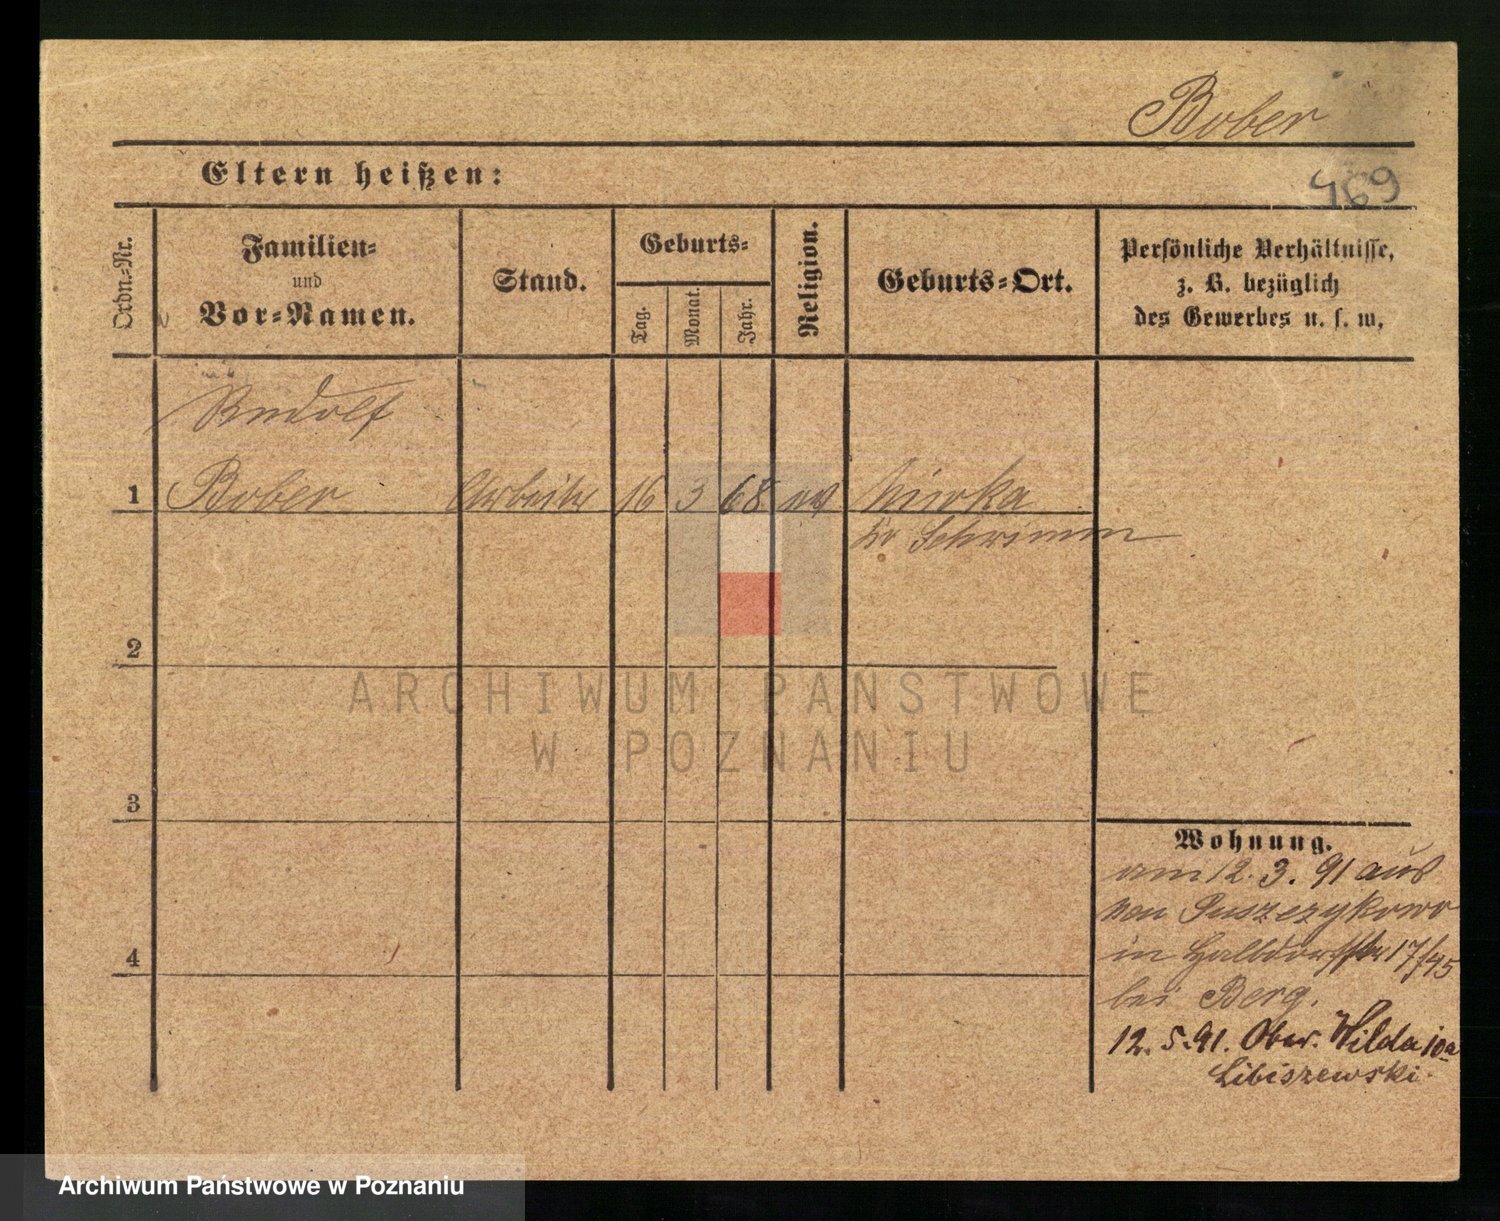 Bober
Eltern heißen:
469
Ordn.-Nr.
Familien-
und
Vor-Namen.
Stand.
Geburts-
Tag.
Monat.
Jahr.
Religion.
Geburts-Ort.
Persönliche Verhältnisse,
z. B. bezüglich
des Gewerbes u. s. w.
Rudolf
1 Bober Arbeiter 16 3 68 ev
Kr Schrimm
2
3
4
Wohnung.
am 12. 3. 91 aus
Puszczykowo
in Halbdorfstr 17/
bei Berg.
12. 5. 91. Ober. Wilda 10a
Libiszewski.
ARCHIWUM PAŃSTWOWE
W POZNANIU
Archiwum Państwowe w Poznaniu